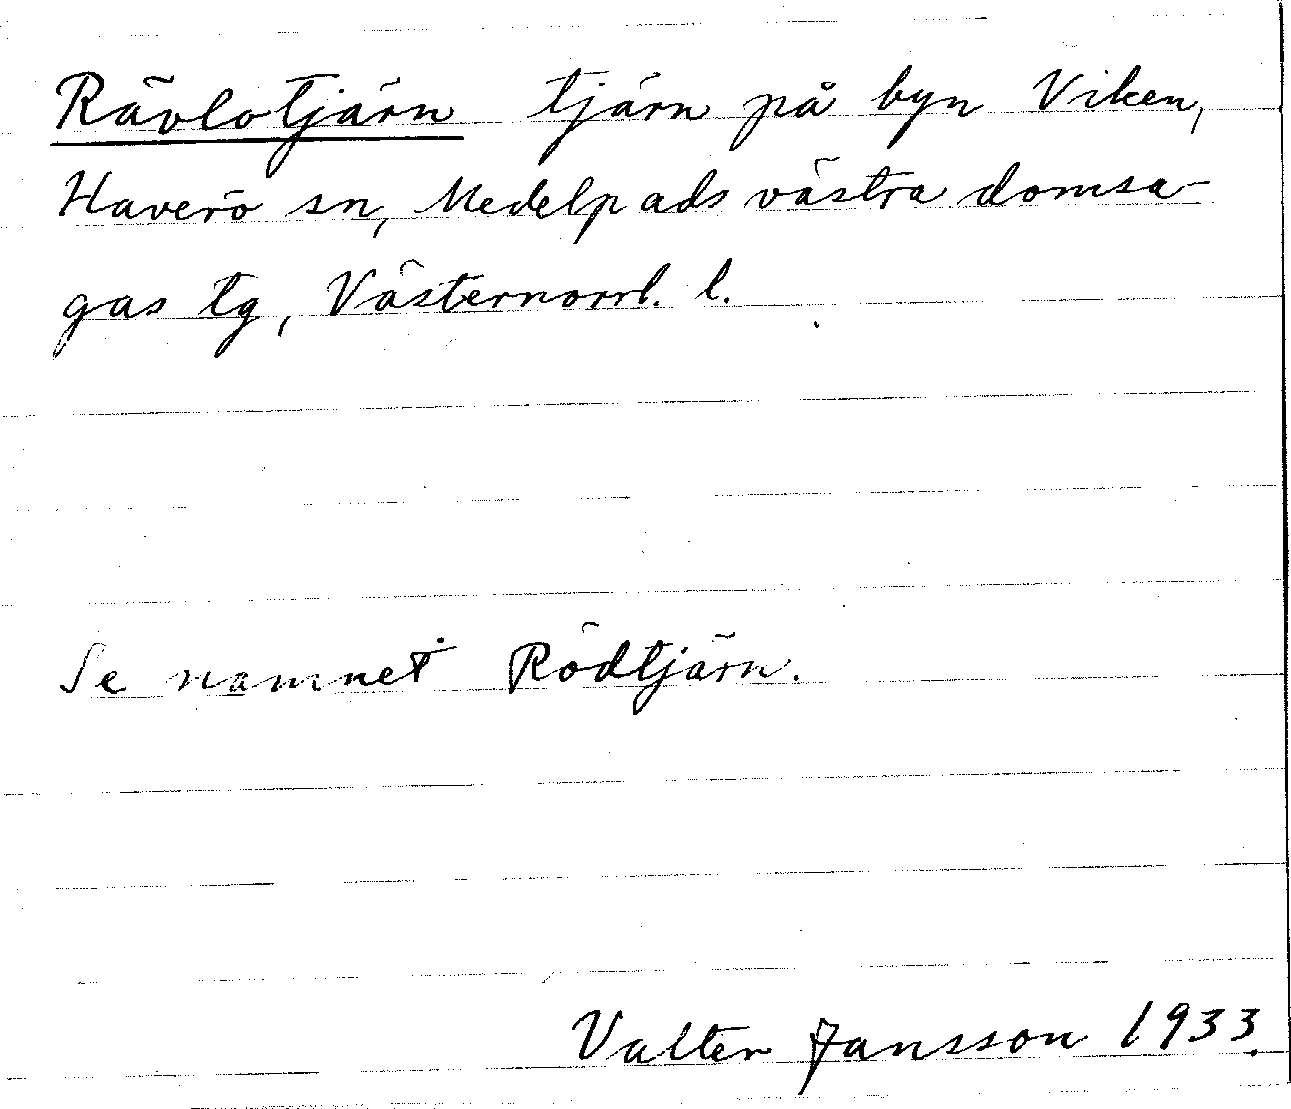 Rävlotjärn tjärn på byn Viken,
Haverö sn, Medelpads västra domsa-
gas tg, Västernorrl. l.
Se namnet Rödtjärn.
Valter Jansson 1933.